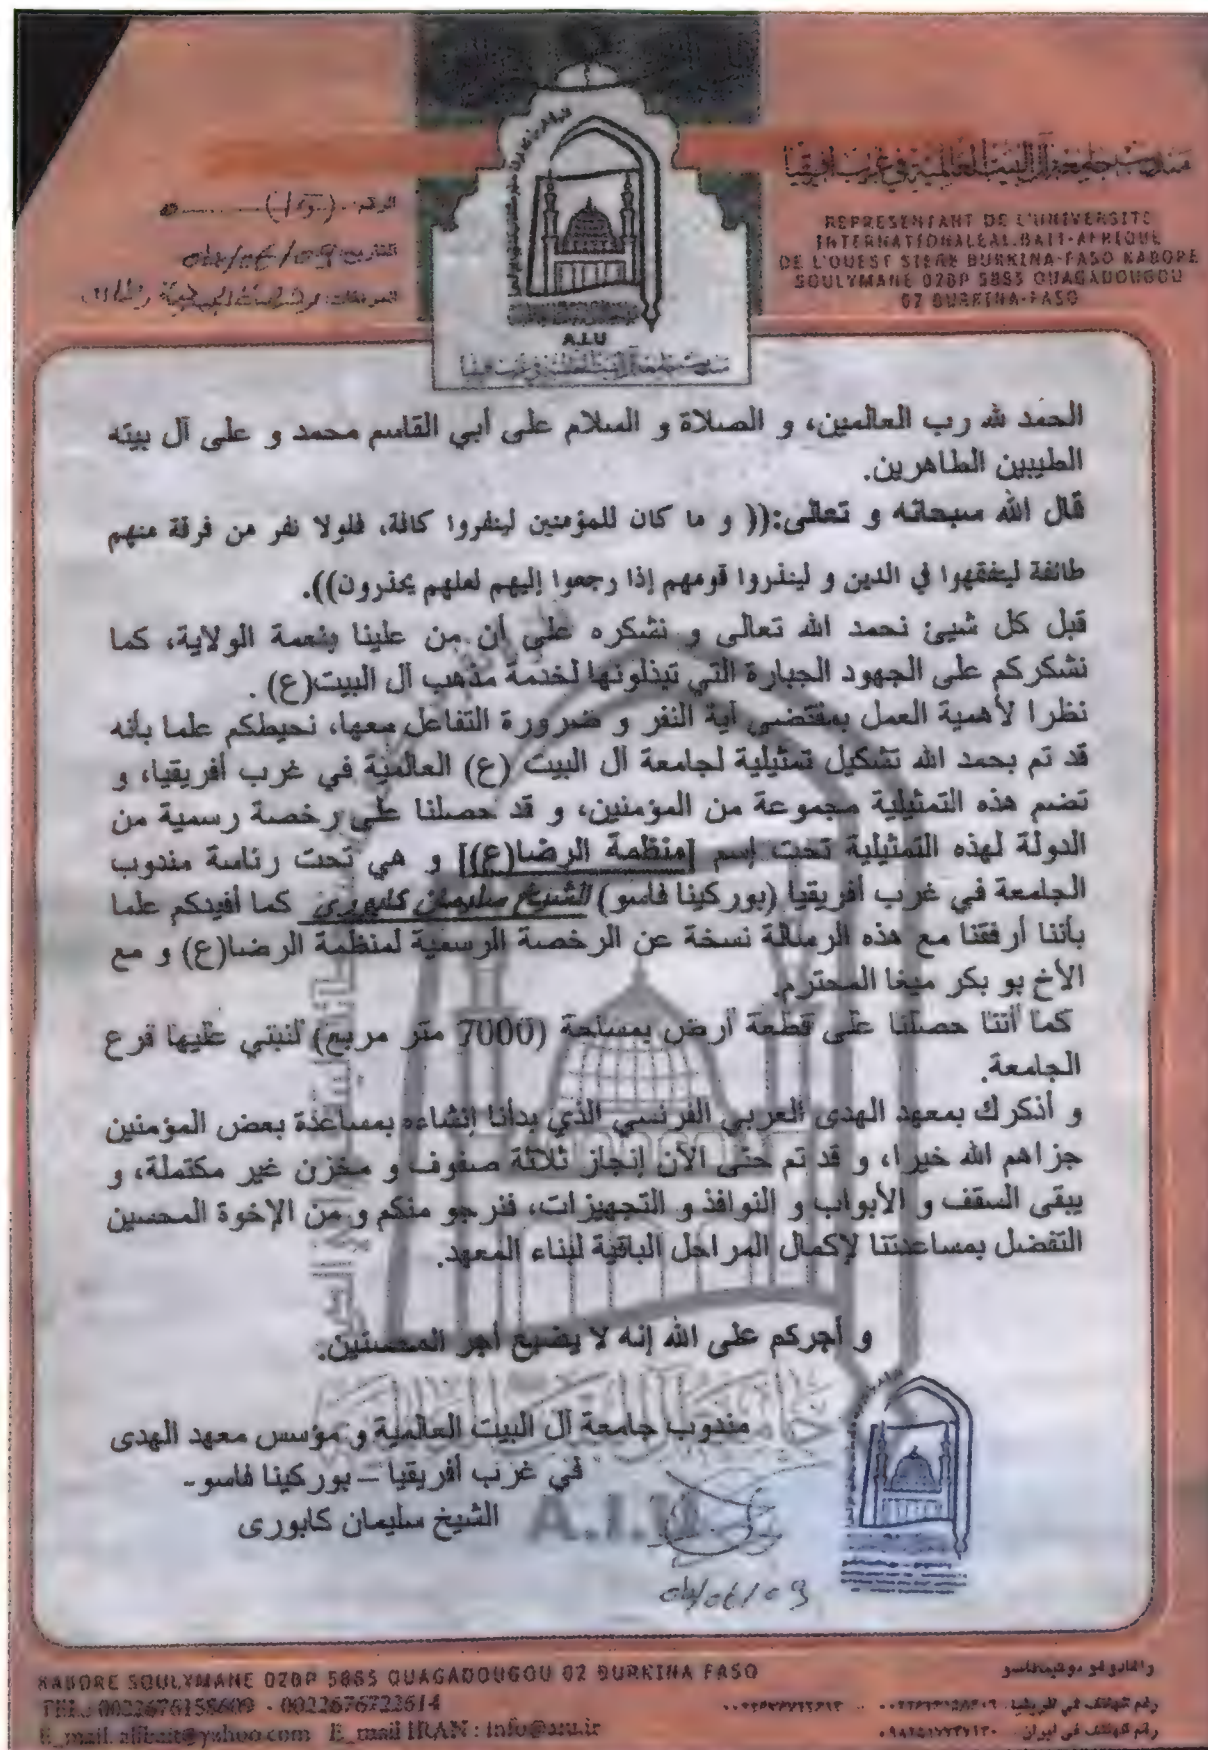 مندوب جامعة آل البيت العالمية في غرب افريقيا
REPRESENTANT DE L'UNIVERSITE
INTERNATIONALEAL.BAIT-AFRIQUE
DE L'OUEST SIEGE BURKINA-FASO KABORE
SOULYMANE 02BP 5885 OUAGADOUGOU
02 BURKINA-FASO
الرقم
التاريخ
المرفقات
A.I.U
مندوب جامعة آل البيت العالمية في غرب افريقيا
الحمد لله رب العالمين، و الصلاة و السلام على أبي القاسم محمد و على آل بيته
الطيبين الطاهرين.
قال الله سبحانه و تعالى:(( و ما كان للمؤمنين لينفروا كافة، فلولا نفر من فرقة منهم
طائفة ليتفقهوا في الدين و لينذروا قومهم إذا رجعوا إليهم لعلهم يحذرون)).
قبل كل شيئ نحمد الله تعالى و نشكره على أن من علينا بنعمة الولاية، كما
نشكركم على الجهود الجبارة التي تبذلونها لخدمة مذهب آل البيت(ع) .
نظرا لأهمية العمل بمقتضى آية النفر و ضرورة التفاعل معها، نحيطكم علما بأنه
قد تم بحمد الله تشكيل تمثيلية لجامعة آل البيت (ع) العالمية في غرب أفريقيا، و
تضم هذه التمثيلية مجموعة من المؤمنين، و قد حصلنا على رخصة رسمية من
الدولة لهذه التمثيلية تحت إسم [منظمة الرضا(ع)] و هي تحت رئاسة مندوب
الجامعة في غرب أفريقيا (بوركينا فاسو) الشيخ سليمان كابوري كما أفيدكم علما
بأننا أرفقنا مع هذه الرسالة نسخة عن الرخصة الرسمية لمنظمة الرضا(ع) و مع
الأخ بو بكر ميغا المحترم.
كما أننا حصلنا على قطعة أرض بمساحة (7000 متر مربع) لنبني عليها فرع
الجامعة.
و أذكرك بمعهد الهدى العربي الفرنسي الذي بدأنا إنشاءه بمساعدة بعض المؤمنين
جزاهم الله خيرا، و قد تم حتى الآن إنجاز ثلاثة صفوف و مخزن غير مكتملة، و
يبقى السقف و الأبواب و النوافذ و التجهيزات، فنرجو منكم و من الإخوة المحسنين
التفضل بمساعدتنا لإكمال المراحل الباقية لبناء المعهد.
و أجركم على الله إنه لا يضيع أجر المحسنين.
مندوب جامعة آل البيت العالمية و مؤسس معهد الهدى
في غرب أفريقيا – بوركينا فاسو-
الشيخ سليمان كابورى
A.I.U
04/06/09
KABORE SOULYMANE 02BP 5885 OUAGADOUGOU 02 BURKINA FASO
TEL: 0022676158609 - 0022676722614
E_mail: alibait@yahoo.com E_mail IRAN : info@aiu.ir
رقم الهاتف في افريقيا
رقم الهاتف في ايران